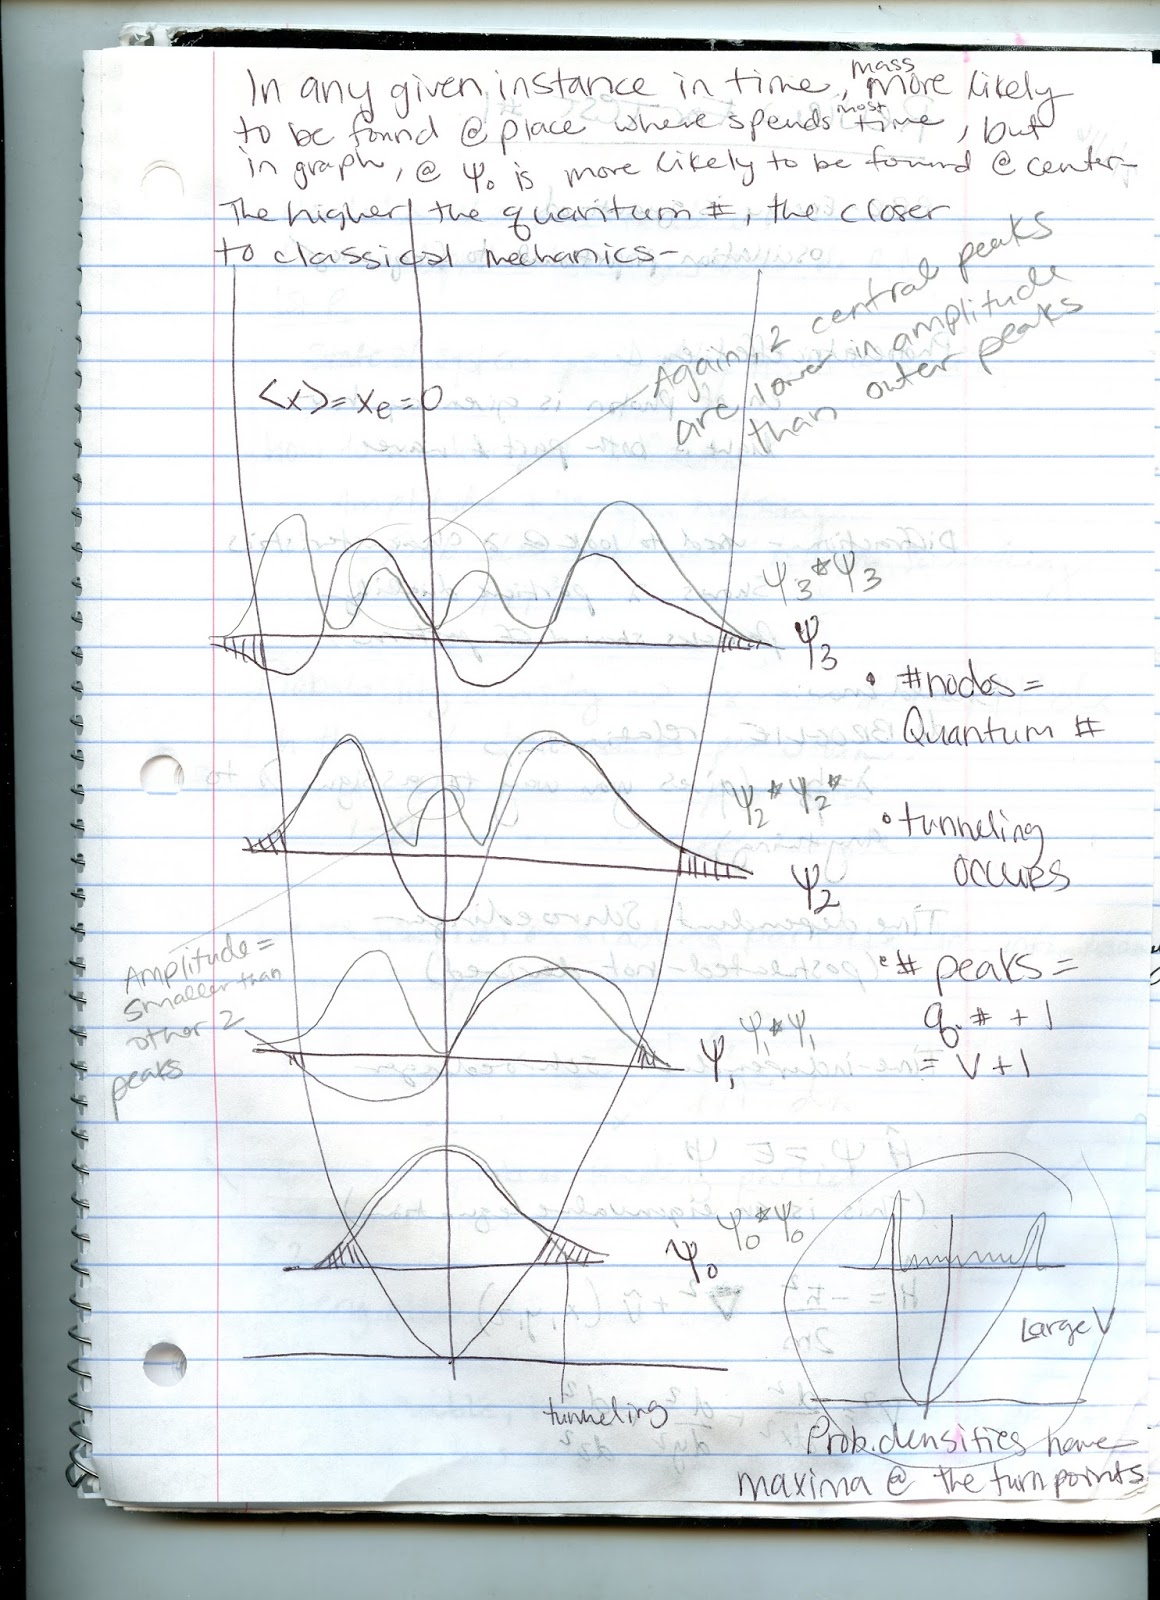 In any given instance in time, mass more likely
to be found @ place where spends most time, but
in graph, @ Ψ₀ is more likely to be found @ center-
The higher the quantum #, the closer
to classical mechanics-
Again, 2 central peaks
are lower in amplitude
than outer peaks
<x> = xe = 0
Ψ₃*Ψ₃
Ψ₃
• #nodes =
Quantum #
Ψ₂*Ψ₂*
• tunneling
occurs
Ψ₂
Amplitude =
smaller than
other 2
peaks
• # peaks =
q. # + 1
= V + 1
Ψ₁*Ψ₁
Ψ₁
Ψ₀*Ψ₀
Ψ₀
Large V
tunneling
Prob. densities have
maxima @ the turn points